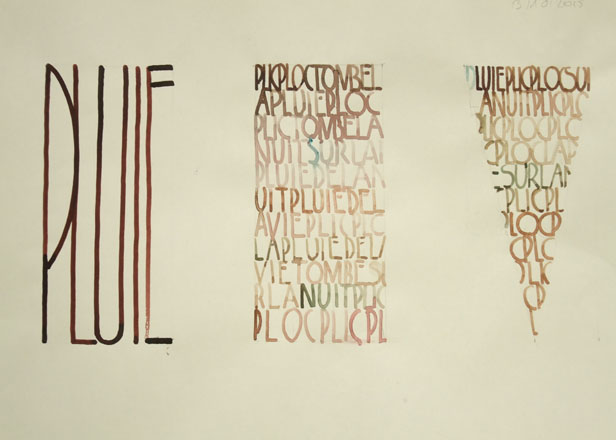 PLUIE
PLICPLOCTOMBELL
APLUIEPLOC
PLICTOMBELA
NUITSURLA
PLUIEDELAN
UITPLUIEDEL
AVIEPLICPLC
LAPLUIEDELA
VIETOMBESU
RLANUITPLIC
PLOCPLICPL
PLUIEPLICPLOCSUR
LANUITPLICPLC
PLICPLOCPLC
-SURLA
PLICPL
PLOCP